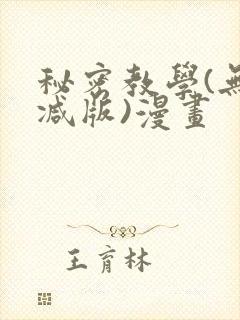 秘密教學(無
減版)漫畫
王育林